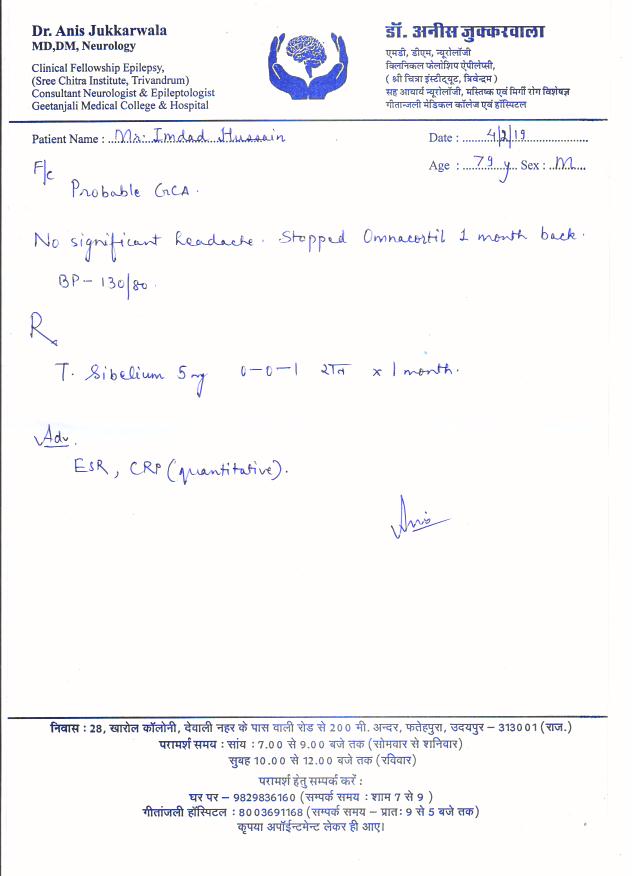 Dr. Anis Jukkarwala
MD,DM, Neurology
Clinical Fellowship Epilepsy,
(Sree Chitra Institute, Trivandrum)
Consultant Neurologist & Epileptologist
Geetanjali Medical College & Hospital
डॉ. अनीस जुक्करवाला
एमडी, डीएम, न्यूरोलॉजी
क्लिनिकल फेलोशिप ऐपीलेप्सी,
( श्री चित्रा इंस्टीट्यूट, त्रिवेन्द्रम )
सह आचार्य न्यूरोलॉजी, मस्तिष्क एवं मिर्गी रोग विशेषज्ञ
गीतान्जली मेडिकल कॉलेज एवं हॉस्पिटल
Patient Name : Mr. Imdad Hussain
Date : 4/2/19
Age : 79 y Sex : M
F/c
Probable GCA.
No significant headache. Stopped Omnacortil 1 month back.
BP - 130/80.
R
T. Sibelium 5 mg 0-0-1 रात x 1 month.
Adv.
ESR, CRP (quantitative).
Anis
निवास : 28, खारोल कॉलोनी, देवाली नहर के पास वाली रोड से 200 मी. अन्दर, फतेहपुरा, उदयपुर – 313001 (राज.)
परामर्श समय : सांय : 7.00 से 9.00 बजे तक (सोमवार से शनिवार)
सुबह 10.00 से 12.00 बजे तक (रविवार)
परामर्श हेतु सम्पर्क करें :
घर पर – 9829836160 (सम्पर्क समय : शाम 7 से 9 )
गीतांजली हॉस्पिटल : 8003691168 (सम्पर्क समय – प्रातः 9 से 5 बजे तक)
कृपया अपॉईन्टमेन्ट लेकर ही आए।